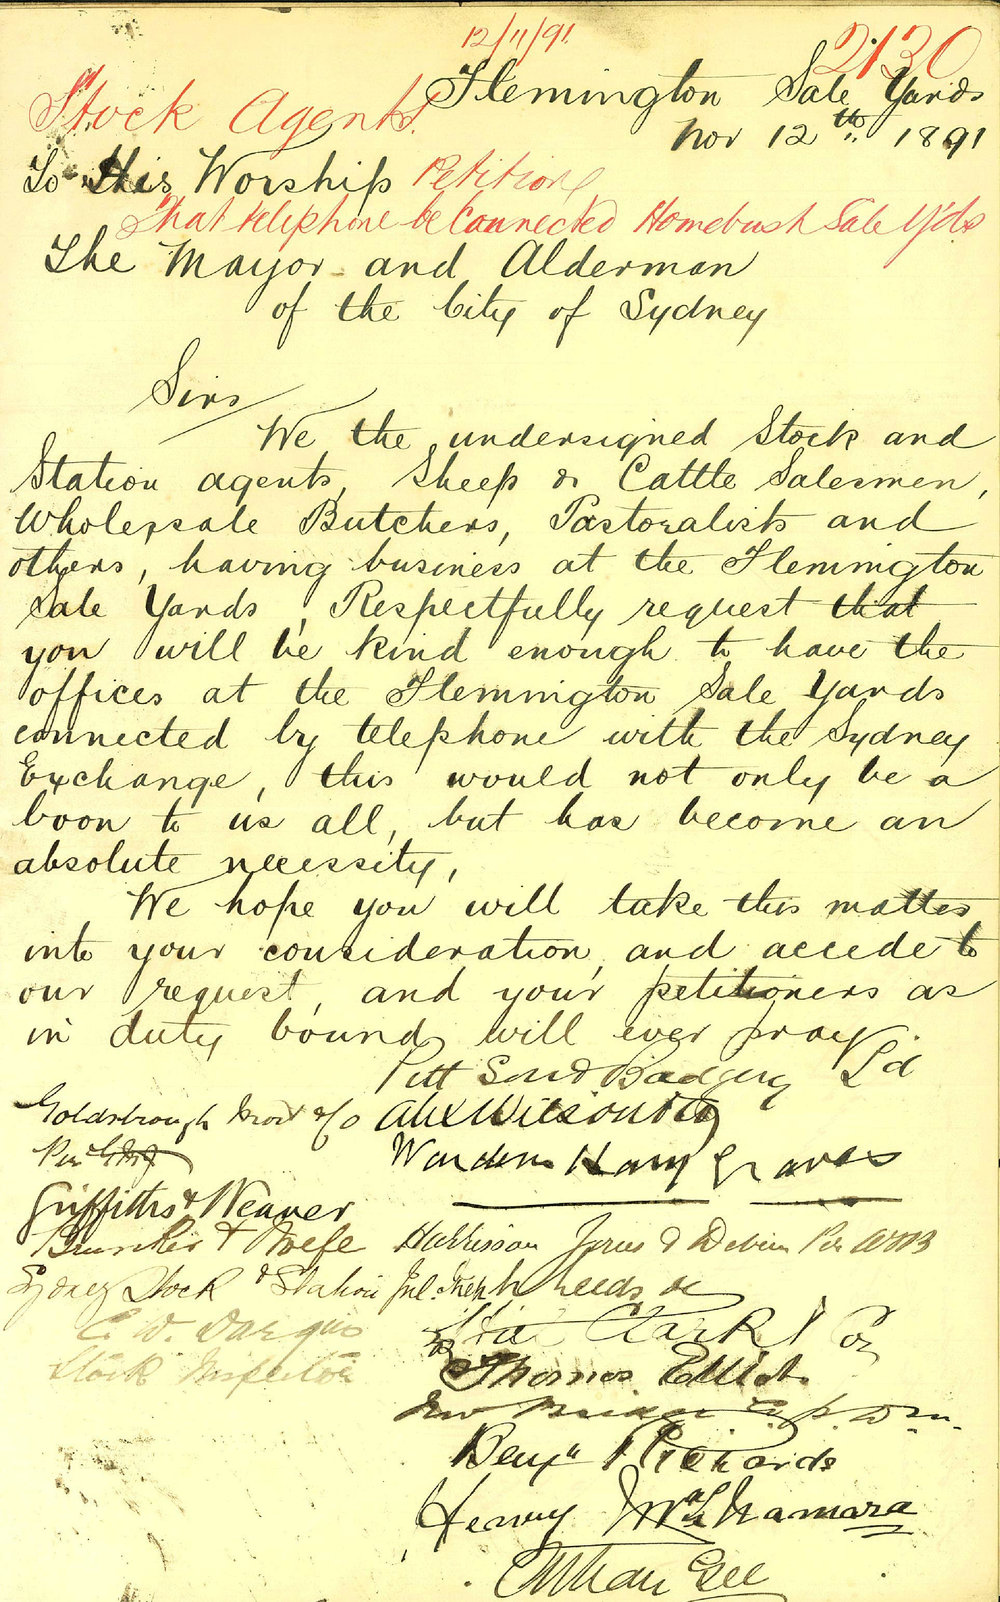 12/11/91
2130
Flemington Sale Yards
Stock Agents
Nov 12th 1891
To His Worship
Petition
That telephone be Connected Homebush Sale Yds
The Mayor and Alderman
of the City of Sydney
Sirs
We the undersigned Stock and
Station agents, Sheep & Cattle Salesmen,
Wholessale Butchers, Pastoralists and
others, having business at the Flemington
Sale Yards, Respectfully request that
you will be kind enough to have the
offices at the Flemington Sale Yards
connected by telephone with the Sydney
Exchange, this would not only be a
boon to us all, but has become an
absolute necessity,
We hope you will take this matter
into your consideration, and accede to
our request, and your petitioners as
in duty bound will ever pray.
Pitt Son & Badgery Ld
Goldsbrough Mort & Co
Alex Wilson & Co
Per
Warden Harry Graves
Griffiths & Weaver
Brunker & Wolfe
Harrison Jones & Devlin Per
Sydney Stock & Station
C. W. Dargin
Clark & Co
Stock Inspector
Thomas Elliott
Benjn Richards
Henry McNamara
Gee